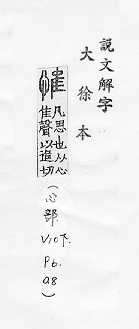 說文解字
大徐本
惟
凡思也从心
隹聲以追切
(心部. V10下. P6. a8)